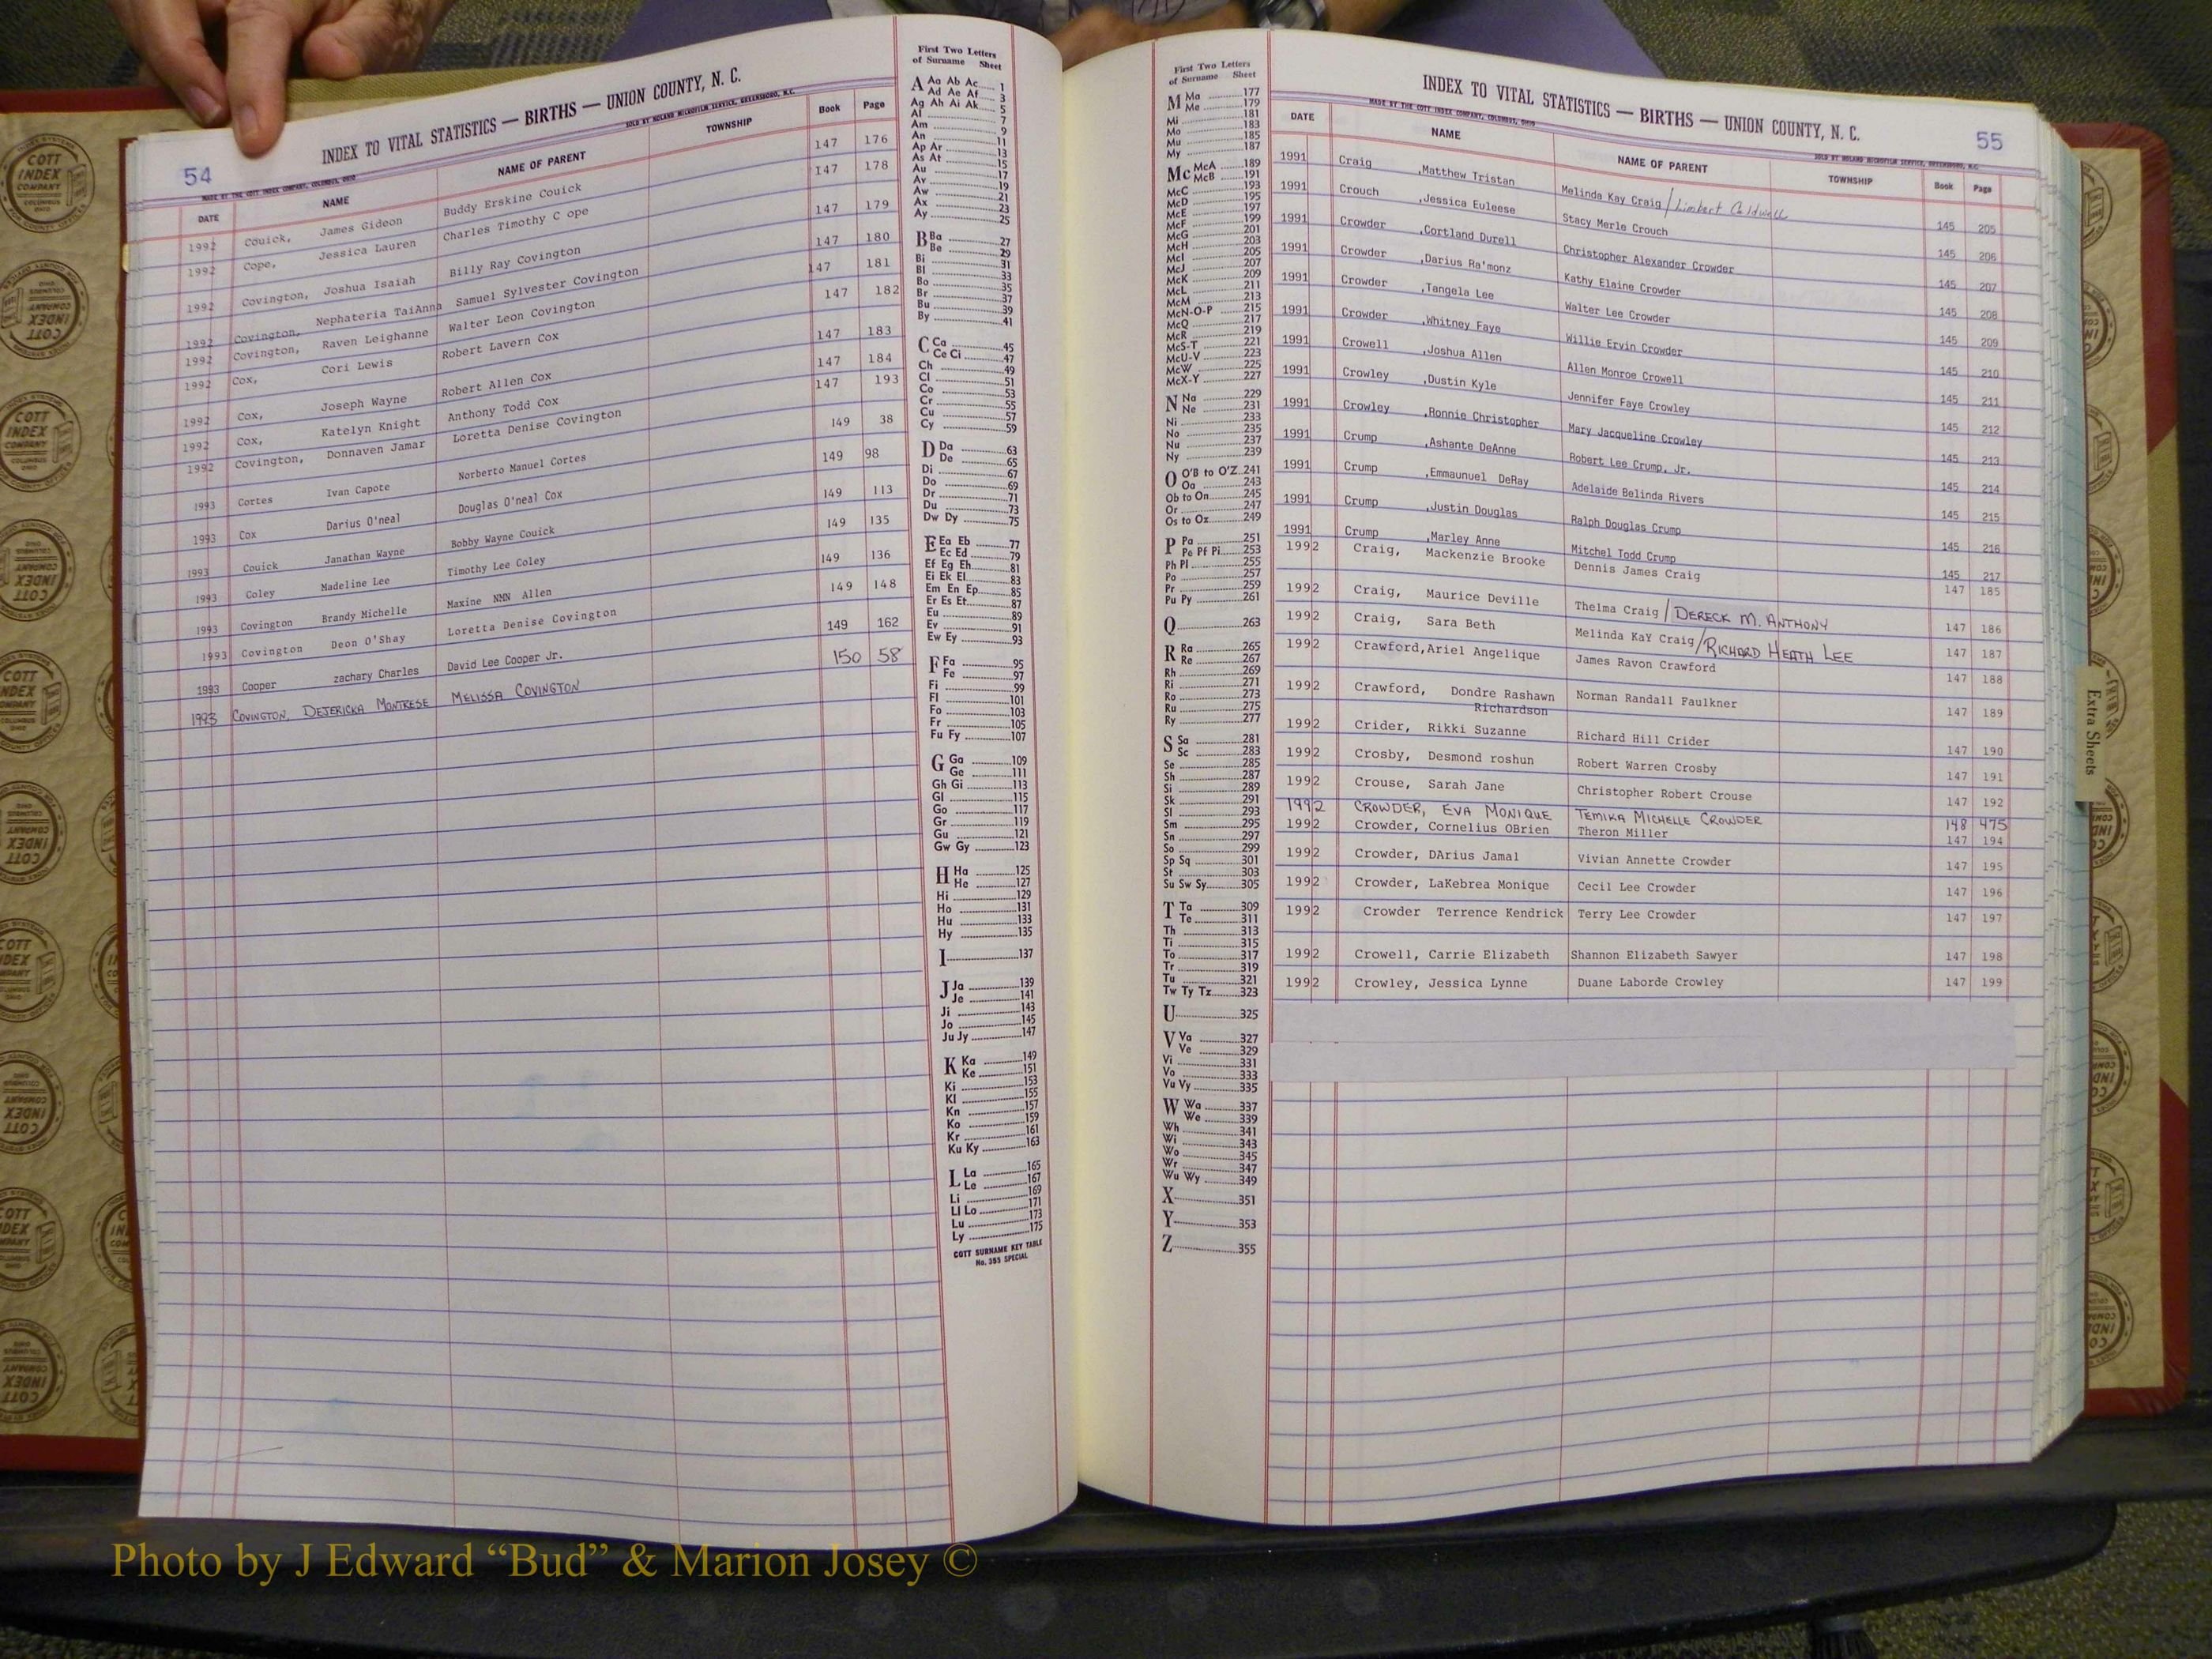 54
INDEX TO VITAL STATISTICS — BIRTHS — UNION COUNTY, N. C.
MADE BY THE COTT INDEX COMPANY, COLUMBUS, OHIO SOLD BY ROLAND MICROFILM SERVICE, GREENSBORO, N.C.
DATE NAME NAME OF PARENT TOWNSHIP Book Page
1992 Couick, James Gideon Buddy Erskine Couick 147 176
1992 Cope, Jessica Lauren Charles Timothy C ope 147 178
1992 Covington, Joshua Isaiah Billy Ray Covington 147 179
1992 Covington, Nephateria TaiAnna Samuel Sylvester Covington 147 180
1992 Covington, Raven Leighanne Walter Leon Covington 147 181
1992 Cox, Cori Lewis Robert Lavern Cox 147 182
1992 Cox, Joseph Wayne Robert Allen Cox 147 183
1992 Cox, Katelyn Knight Anthony Todd Cox 147 184
1992 Covington, Donnaven Jamar Loretta Denise Covington 147 193
1993 Cortes Ivan Capote Norberto Manuel Cortes 149 38
1993 Cox Darius O'neal Douglas O'neal Cox 149 98
1993 Couick Janathan Wayne Bobby Wayne Couick 149 113
1993 Coley Madeline Lee Timothy Lee Coley 149 135
1993 Covington Brandy Michelle Maxine NMN Allen 149 136
1993 Covington Deon O'Shay Loretta Denise Covington 149 148
1993 Cooper zachary Charles David Lee Cooper Jr. 149 162
1993 COVINGTON, DEJERICKA MONTRESE MELISSA COVINGTON 150 58
First Two Letters
of Surname Sheet
A Aa Ab Ac 1
Ad Ae Af 3
Ag Ah Ai Ak 5
Al 7
Am 9
An 11
Ap Ar 13
As At 15
Au 17
Av 19
Aw 21
Ax 23
Ay 25
B Ba 27
Be 29
Bi 31
Bl 33
Bo 35
Br 37
Bu 39
By 41
C Ca 45
Ce Ci 47
Ch 49
Cl 51
Co 53
Cr 55
Cu 57
Cy 59
D Da 63
De 65
Di 67
Do 69
Dr 71
Du 73
Dw Dy 75
E Ea Eb 77
Ec Ed 79
Ef Eg Eh 81
Ei Ek El 83
Em En Ep 85
Er Es Et 87
Eu 89
Ev 91
Ew Ey 93
F Fa 95
Fe 97
Fi 99
Fl 101
Fo 103
Fr 105
Fu Fy 107
G Ga 109
Ge 111
Gh Gi 113
Gl 115
Go 117
Gr 119
Gu 121
Gw Gy 123
H Ha 125
He 127
Hi 129
Ho 131
Hu 133
Hy 135
I 137
J Ja 139
Je 141
Ji 143
Jo 145
Ju Jy 147
K Ka 149
Ke 151
Ki 153
Kl 155
Kn 157
Ko 159
Kr 161
Ku Ky 163
L La 165
Le 167
Li 169
Ll Lo 171
Lu 173
Ly 175
COTT SURNAME KEY TABLE
No. 355 SPECIAL
First Two Letters
of Surname Sheet
M Ma 177
Me 179
Mi 181
Mo 183
Mu 185
My 187
Mc McA 189
McB 191
McC 193
McD 195
McE 197
McF 199
McG 201
McH 203
McI 205
McJ 207
McK 209
McL 211
McM 213
McN-O-P 215
McQ 217
McR 219
McS-T 221
McU-V 223
McW 225
McX-Y 227
N Na 229
Ne 231
Ni 233
No 235
Nu 237
Ny 239
O O'B to O'Z 241
Oa 243
Ob to On 245
Or 247
Os to Oz 249
P Pa 251
Pe Pf Pi 253
Ph Pl 255
Po 257
Pr 259
Pu Py 261
Q 263
R Ra 265
Re 267
Rh 269
Ri 271
Ro 273
Ru 275
Ry 277
S Sa 281
Sc 283
Se 285
Sh 287
Si 289
Sk 291
Sl 293
Sm 295
Sn 297
So 299
Sp Sq 301
St 303
Su Sw Sy 305
T Ta 309
Te 311
Th 313
Ti 315
To 317
Tr 319
Tu 321
Tw Ty Tz 323
U 325
V Va 327
Ve 329
Vi 331
Vo 333
Vu Vy 335
W Wa 337
We 339
Wh 341
Wi 343
Wo 345
Wr 347
Wu Wy 349
X 351
Y 353
Z 355
55
INDEX TO VITAL STATISTICS — BIRTHS — UNION COUNTY, N. C.
MADE BY THE COTT INDEX COMPANY, COLUMBUS, OHIO SOLD BY ROLAND MICROFILM SERVICE, GREENSBORO, N.C.
DATE NAME NAME OF PARENT TOWNSHIP Book Page
1991 Craig ,Matthew Tristan Melinda Kay Craig / Limbert Caldwell 145 205
1991 Crouch ,Jessica Euleese Stacy Merle Crouch 145 206
1991 Crowder ,Cortland Durell Christopher Alexander Crowder 145 207
1991 Crowder ,Darius Ra'monz Kathy Elaine Crowder 145 208
1991 Crowder ,Tangela Lee Walter Lee Crowder 145 209
1991 Crowder ,Whitney Faye Willie Ervin Crowder 145 210
1991 Crowell ,Joshua Allen Allen Monroe Crowell 145 211
1991 Crowley ,Dustin Kyle Jennifer Faye Crowley 145 212
1991 Crowley ,Ronnie Christopher Mary Jacqueline Crowley 145 213
1991 Crump ,Ashante DeAnne Robert Lee Crump, Jr. 145 214
1991 Crump ,Emmaunuel DeRay Adelaide Belinda Rivers 145 215
1991 Crump ,Justin Douglas Ralph Douglas Crump 145 216
1991 Crump ,Marley Anne Mitchel Todd Crump 145 217
1992 Craig, Mackenzie Brooke Dennis James Craig 147 185
1992 Craig, Maurice Deville Thelma Craig / DERECK M. ANTHONY 147 186
1992 Craig, Sara Beth Melinda KaY Craig / RICHARD HEATH LEE 147 187
1992 Crawford, Ariel Angelique James Ravon Crawford 147 188
1992 Crawford, Dondre Rashawn Norman Randall Faulkner 147 189
Richardson
1992 Crider, Rikki Suzanne Richard Hill Crider 147 190
1992 Crosby, Desmond roshun Robert Warren Crosby 147 191
1992 Crouse, Sarah Jane Christopher Robert Crouse 147 192
1992 CROWDER, EVA MONIQUE TEMIKA MICHELLE CROWDER 148 475
1992 Crowder, Cornelius OBrien Theron Miller 147 194
1992 Crowder, DArius Jamal Vivian Annette Crowder 147 195
1992 Crowder, LaKebrea Monique Cecil Lee Crowder 147 196
1992 Crowder Terrence Kendrick Terry Lee Crowder 147 197
1992 Crowell, Carrie Elizabeth Shannon Elizabeth Sawyer 147 198
1992 Crowley, Jessica Lynne Duane Laborde Crowley 147 199
Extra Sheets
COTT INDEX COMPANY
Photo by J Edward “Bud” & Marion Josey ©